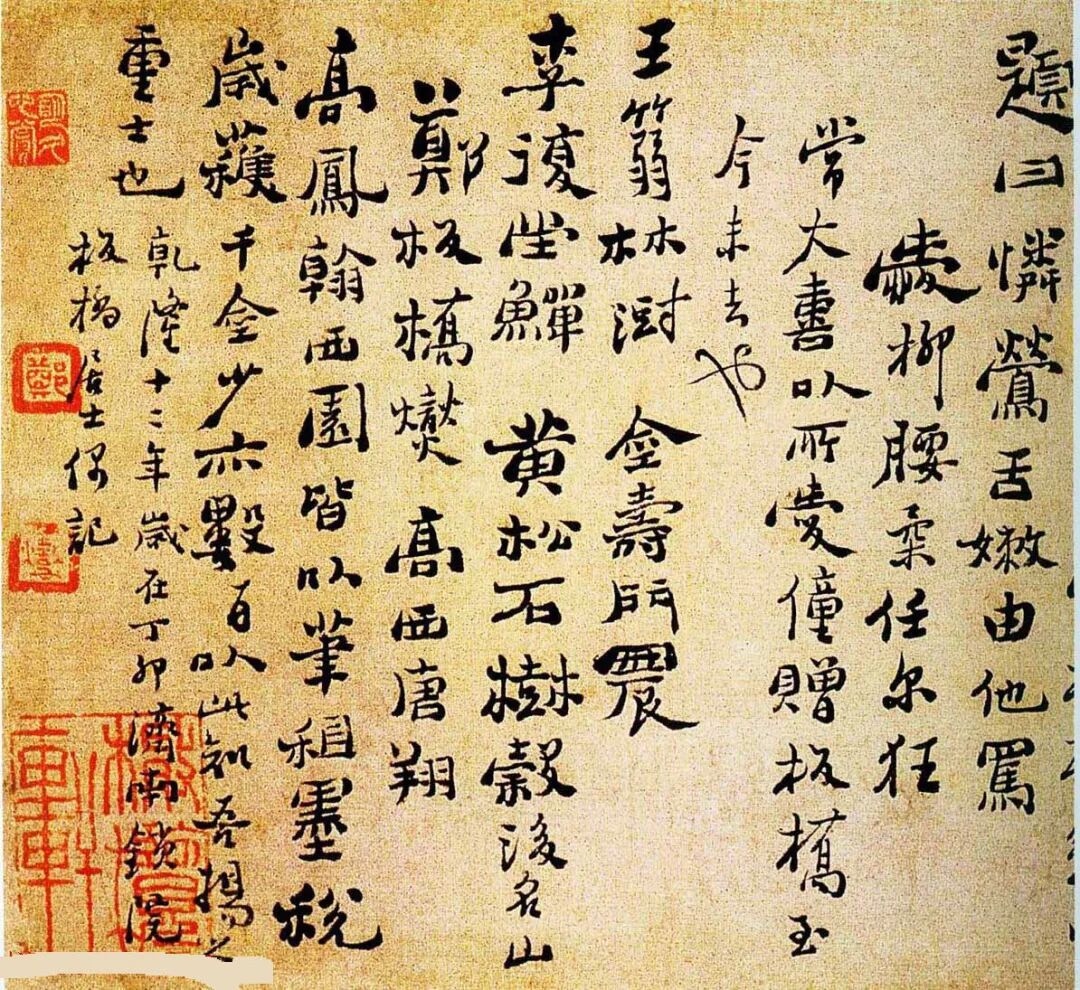 題曰憐鶯舌嫩由他罵
愛柳腰柔任尔狂
常大喜以所愛僮贈板橋至
今未去也
王篛林澍 金壽門農
李復堂鱓 黃松石樹穀後名山
鄭板橋燮 高西唐翔
高鳳翰西園皆以筆租墨稅
歲獲千金少亦數百以此知吾揚之
重士也 乾隆十二年歲在丁卯濟南鎖院
板橋居士偶記
鄭